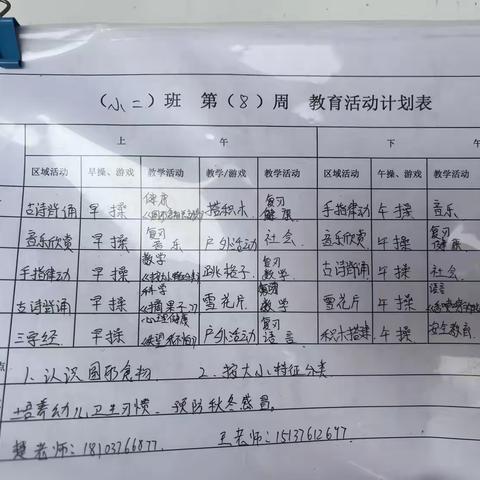 （小二）班 第（8）周 教育活动计划表
上 午 下
区域活动 早操、游戏 教学活动 教学/游戏 教学活动 区域活动 午操、游戏 教学活动
古诗背诵 早操 健康 搭积木 复习健康 手指律动 午操 音乐
音乐欣赏 早操 复习音乐 户外活动 社会 音乐欣赏 午操 复习健康
手指律动 早操 数学 跳格子 复习数学 古诗背诵 午操 社会
古诗背诵 早操 科学《摘果子》 雪花片 复习数学 雪花片 午操 语言
三字经 早操 心理健康 户外活动 复习语言 积木搭建 午操 安全教育
点 1、认识圆形食物 2、按大小特征分类
培养幼儿卫生习惯、预防秋冬感冒。
楚老师：18103766877 王老师：15137612647